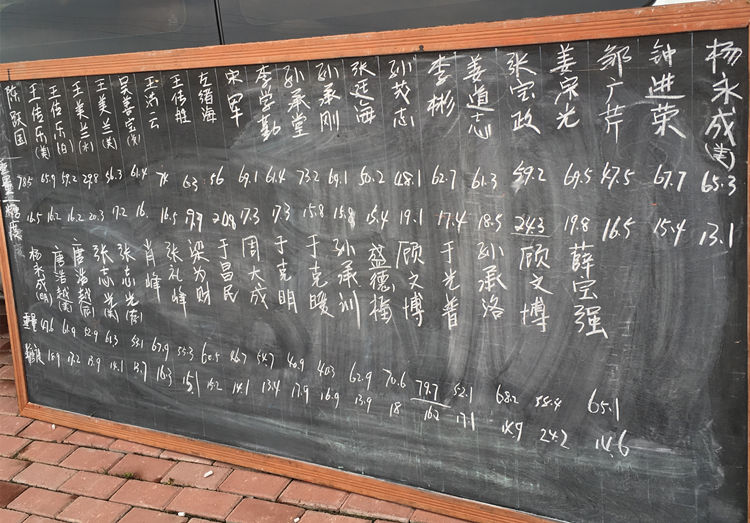 陈跃国 王传乐(美) 王传乐(白) 王美兰(大) 王美兰(美) 吴善宝(美) 王洪云 王传胜 左缙海 宋军 李学勤 孙承堂 孙承刚 张廷海 孙茂志 李彬 姜道志 张宝政 姜宗光 邹广芹 钟进荣 杨永成(美)
重量 78.5 65.9 59.2 29.8 56.3 61.4 74 63 56 69.1 61.4 73.2 69.1 50.2 48.1 62.7 61.3 59.2 69.5 47.5 67.7 65.3
糖度 16.5 16.2 16.2 20.3 17.2 16. 16.5 9.7 20.8 17.3 17.3 15.8 15.8 15.4 19.1 17.4 18.5 24.3 19.8 16.5 15.4 13.1
杨永成(明) 唐浩越(美) 唐浩越 张志光(美) 张志光 肖峰 张礼峰 梁为财 于昌民 周大成 于克明 于克暖 孙承训 益德梅 顾文博 于光普 孙承洛 顾文博 薛宝强
重量 61.9 52.9 61.3 55.1 67.9 55.3 60.5 54.7 40.9 40.3 62.9 70.6 79.7 52.1 68.2 58.4 65.1
糖度 15.9 17.2 13.9 14.1 15.7 16.3 15.1 15.2 14.1 13.4 17.9 16.9 13.9 18 16.2 17.1 14.9 24.2 14.6